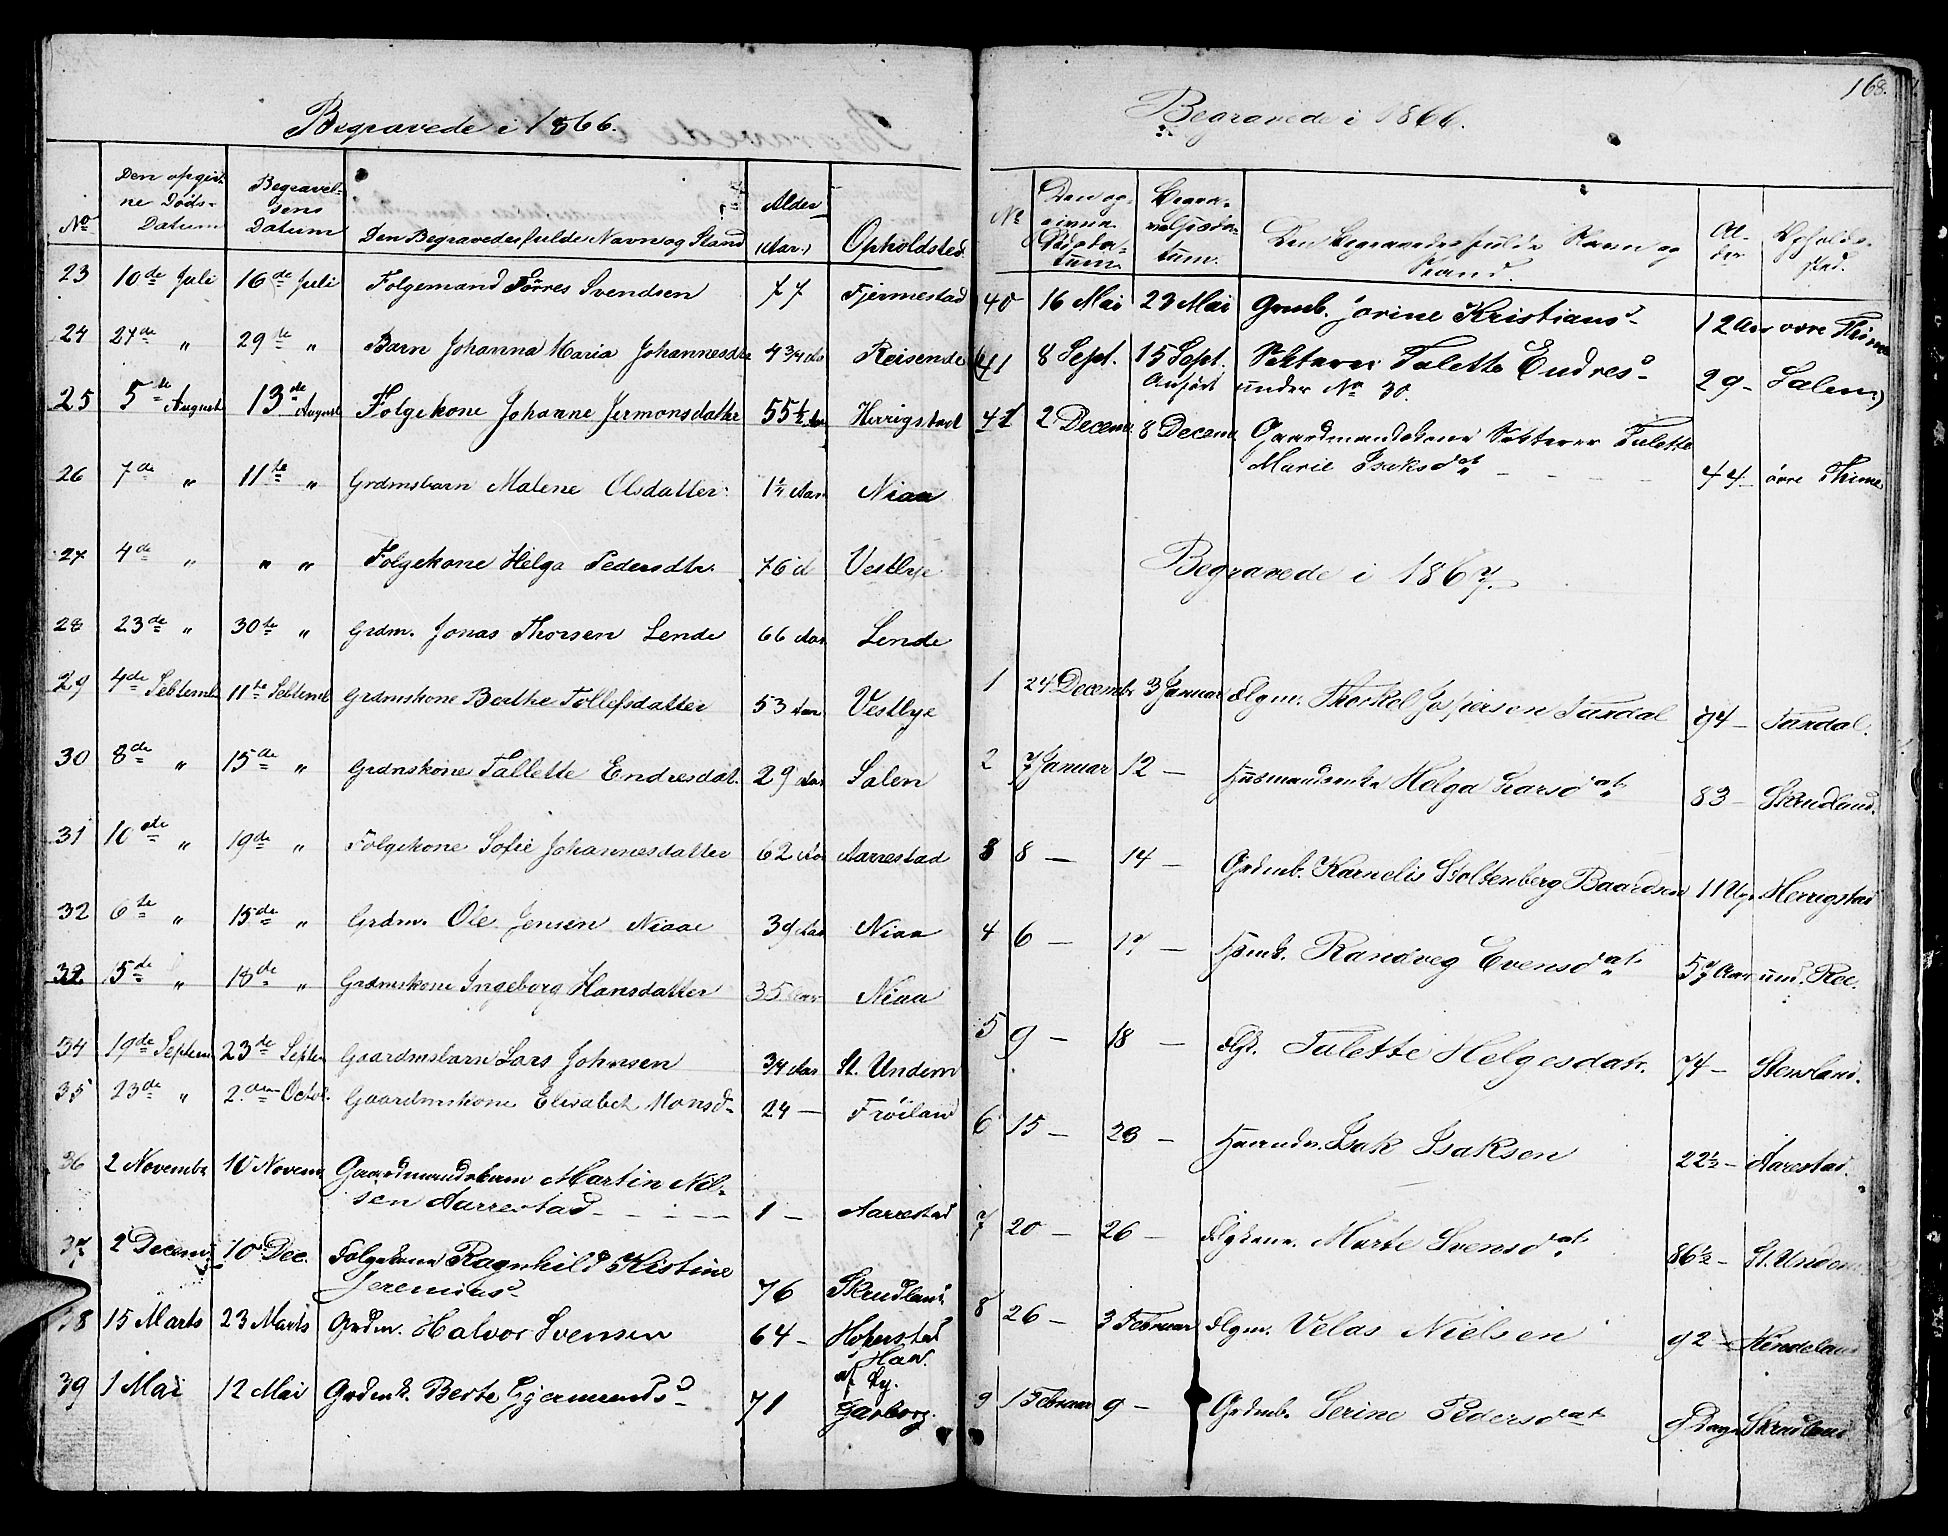 Begravede i 1866.
No
Den opgivne Døds-Datum
Begravelsens Datum
Den Begravedes fulde Navn og Stand
Alder (Aar.)
Opholdsted.
23 10de Juli 16de Juli Folgemand Tørres Svendsen 77 Fjermestad
24 27de " 29de " Barn Johanna Maria Johannesdtr 4 3/4 Aar Reisende
25 5te August 13de August Folgekone Johanne Jermonsdatter 55 1/2 Aar Herrigstad
26 7de " 11te " Grdmsbarn Malene Olsdatter Aar Niaa
27 4de " " " Folgekone Helga Pedersdtr. 76 Vestlye
28 23de " 30te " Grdm. Jonas Thorsen Lende 66 Aar Lende
29 4de Septemb 11te Septemb Grdmskone Berthe Tollefsdatter 53 Aar Vestlye
30 8de " 15de " Grdmskone Tallette Endresdat. 29 Aar Salen
31 10de " 19de " Folgekone Sofie Johannesdatter 62 Aar Aarrestad
32 6te " 15de " Grdm. Ole Jensen Niaae 39 Aar Niaa
33 15de " 18de " Grdmskone Ingeborg Hansdatter 35 Aar Niaa
34 19de Septem 23de Septem Gaardmsbarn Lars Johnsen 3/4 Aar St. Undem
35 23de " 2den Octob. Gaardmskone Elisabet Monsd- 24 — Frøiland
36 2 Novembr 10 Novem Gaardmandsbarn Martin Nil-
sen Aarrestad - - - 1 - Aarrestad
37 2 Decem 10 Dec. Folgekone Ragnhild Kistine
Jeremiasd 76 Skrudland
38 15 Marts 23 Marts Grdm. Halvor Svensen 64 - Hognestad
39 1 Mai 12 Mai Grdmk. Berte Gjermundsd- 71 Garborg.
168.
Begravede i 1866.
No
Den opgivne Dødsdatum
Begravelsesdatum.
Den Begravedes fulde Navn og Stand.
Alder
Opholdssted.
40 16 Mai 23 Mai Grmb. Jorine Kristiansd- 12 Aar øvre Thime
41 8 Sept. 15 Sept. Sekterer Talette Endresd- 29- Salen
Anført under No 30.
41 2 Decemb 8 Decemb Gaardmandskone Sekterer Talette
Marie Isaksdat - - - - 44 - øvre Thime
Begravede i 1867.
1 24 Decembr 3 Januar Flgm. Thorkel Jospersen Taxdal 94 - Taxdal.
2 7 Januar 12 - Husmandsenke Helga Ivarsdat. 83 - Skrudland.
3 8 - 14 - Grdmb. Karnelis Stoltenberg Baardsen 11 Uger Herrigstad
4 6 - 17 - Hsmb. Randveg Evensdat. Aar und. Ree.
5 9 - 18 - Flgk. Talette Helgesdatr. 74 - Stensland.
6 15 - 23 - Isak Isaksen 22 1/2 - Aarestad.
7 20 - 26 - Marte Svensdat. 86 1/2 - St. Undem
8 26 - 3 Februar Flgm. Velas Nielsen 92 - Hindeland
9 1 Februar 9 - Grdmb. Serine Pedersdat 9 Dage Skrudland